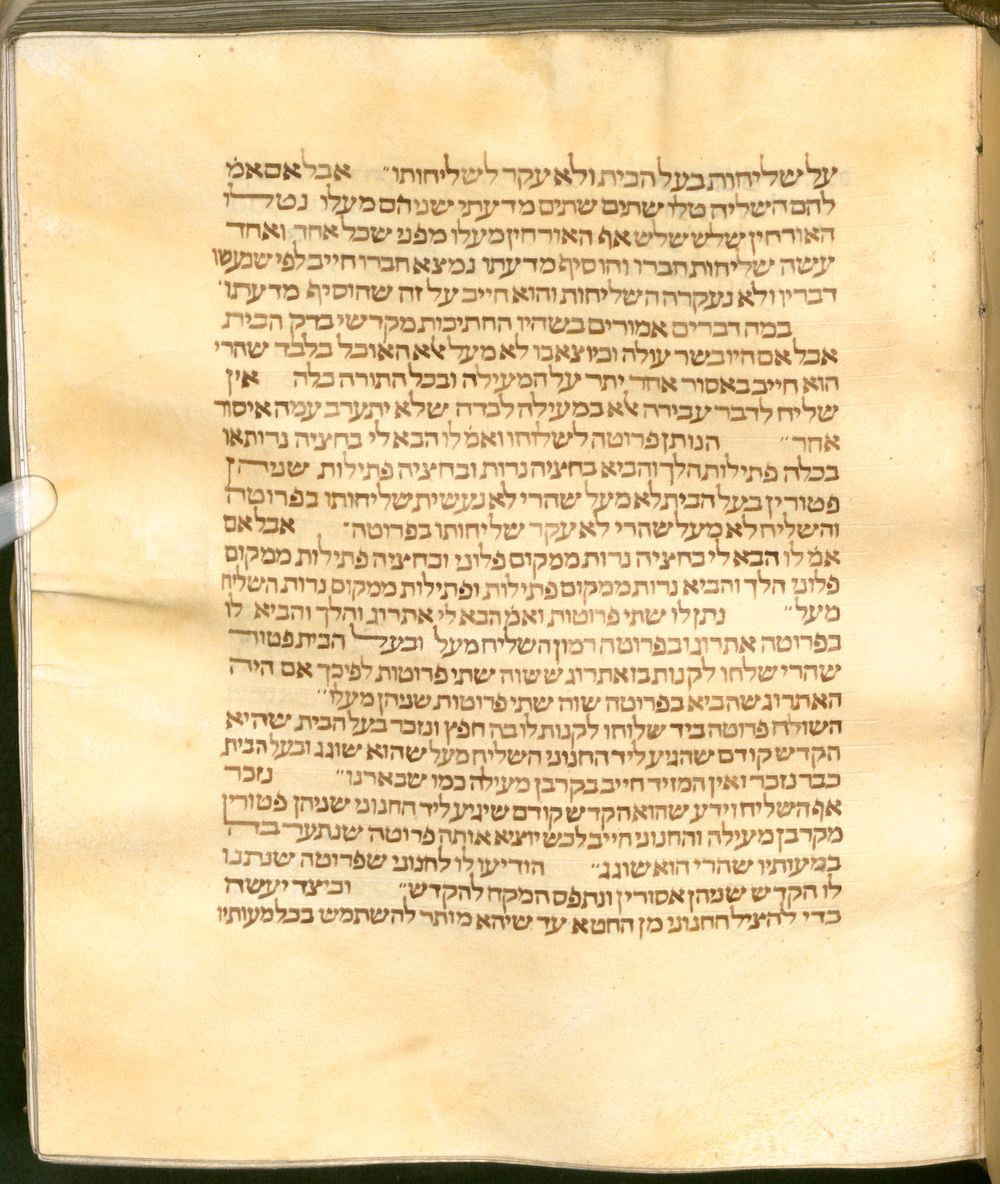 על שליחות בעל הבית ולא עקר לשליחותו״ אבל אם אמ׳
להם השליח טלו שתים שתים מדעתי שניהם מעלו נטלו
האורחין שלש שלש אף האורחין מעלו מפני שכל אחד ואחד
עשה שליחות חברו והוסיף מדעתו נמצא חברו חייב לפי שנעשו
דבריו ולא נעקרה השליחות והוא חייב על זה שהוסיף מדעתו׳
במה דברים אמורים בשהיו החתיכות מקדשי בדק הבית
אבל אם היו בשר עולה וכיוצא בו לא מעל אלא האוכל בלבד שהרי
הוא חייב באסור אחר יתר על המעילה ובכל התורה כלה אין
שליח לדבר עבירה אלא במעילה לבדה שלא יתערב עמה איסור
אחר״ הנותן פרוטה לשלוחו ואמ׳ לו הבא לי בחציה נרות או
בכלה פתילות הלך והביא בחציה נרות ובחציה פתילות שניהן
פטורין בעל הבית לא מעל שהרי לא נעשית שליחותו בפרוטה
והשליח לא מעל שהרי לא עקר שליחותו בפרוטה״ אבל אם
אמ׳ לו הבא לי בחציה נרות ממקום פלוני ובחציה פתילות ממקום
פלוני הלך והביא נרות ממקום פתילות ופתילות ממקום נרות השליח
מעל״ נתן לו שתי פרוטות ואמ׳ הבא לי אתרוג והלך והביא לו
בפרוטה אתרוג ובפרוטה רמון השליח מעל ובעל הבית פטור
שהרי שלחו לקנות בו אתרוג ששוה שתי פרוטות לפיכך אם היה
האתרוג שהביא בפרוטה שוה שתי פרוטות שניהן מעלו״
השולח פרוטה ביד שלוחו לקנות לו בה חפץ ונזכר בעל הבית שהיא
הקדש קודם שהגיע ליד החנוני השליח מעל שהוא שוגג ובעל הבית
כבר נזכר ואין המזיד חייב בקרבן מעילה כמו שבארנו״ נזכר
אף השליח וידע שהוא הקדש קודם שיגיע ליד החנוני שניהן פטורין
מקרבן מעילה והחנוני חייב לכשיוציא אותה פרוטה שנתערבה
במעותיו שהרי הוא שוגג״ הודיעו לו לחנוני שפרוטה שנתנו
לו הקדש שניהן אסורין ונתפס המקח להקדש״ וכיצד יעשה
כדי להציל החנוני מן החטא עד שיהא מותר להשתמש בכל מעותיו